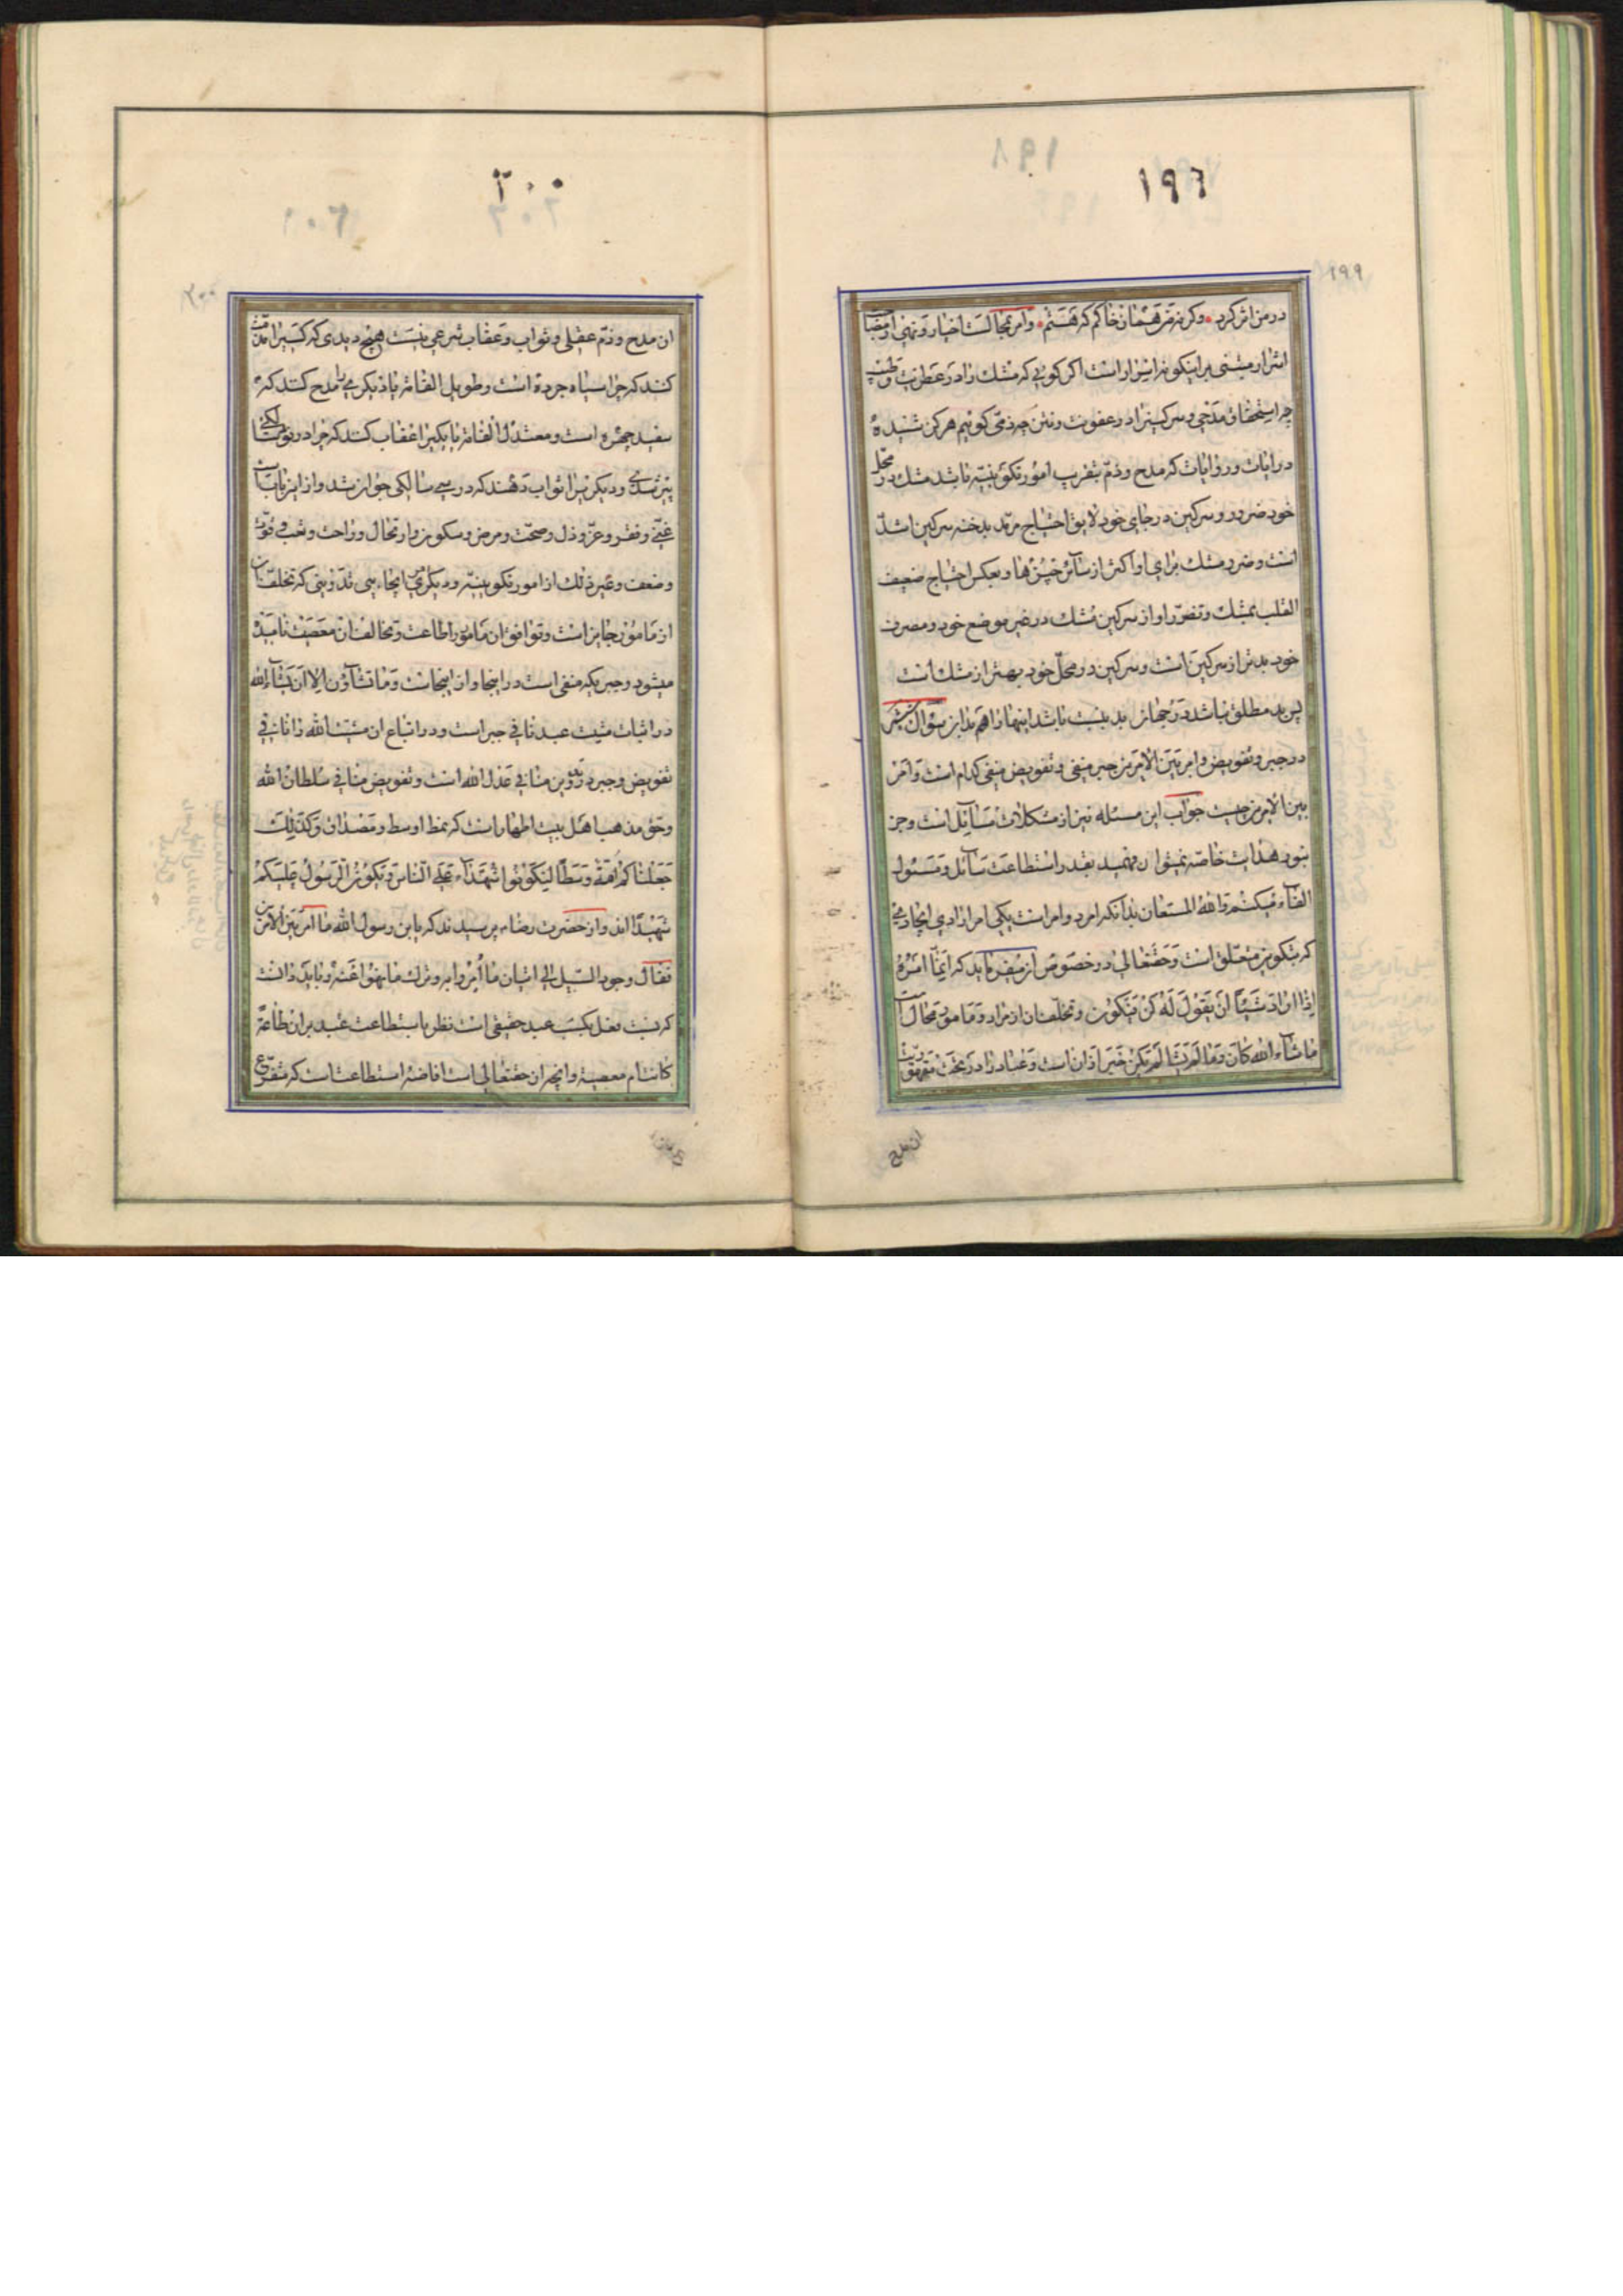 ۱۹۶
۱۹۹
در من اثر کرد و کرنه من همان خاکم که هستم و امر بمجالست اخیار و نهی از مصاحبت
اشرار مبتنی بر اینگونه اسرار است اگر گوئی که مشک را در عطریت و طیب
چه استحقاق مدحی و سرکین را در عفونت و نتن چه ذمّی گوئیم هرگز شنیدهٔ
در ایات و روایات که مدح و ذمّ بتقریب امور تکوینیّه باشد مشک در محلّ
خود ضرور و سرکین در جای خود لایق احتیاج مرتد بدخنه سرکین اشدّ
است و ضرر مشک برای او اکثر از سائر چیزها و بعکس احتیاج ضعیف
القلب بمشک و تضرّر او از سرکین مشک در غیر موضع خود و مصرف
خود بدتر از سرکین است و سرکین در محلّ خود بهتر از مشک است
پس بد مطلق نباشد در جهان بد بنسبت باشد اینها را هم بدان سؤال
در جبر و تفویض و امر بین الامرین جبر منفی و تفویض منفی کدام است و امر
بین الامرین چیست جواب این مسئله نیز از مشکلات مسائل است و جز
بنور هدایت خاصّه نمیتوان فهمید بقدر استطاعت سائل و مسئول
القاء میکنم و الله المستعان بدانکه امر دو امر است یکی امر ارادی ایجادی
که بتکوین متعلق است و حقتعالی در خصوص آن میفرماید که انّما امره
اذا اراد شیئا ان یقول له کن فیکون و تخلّف ان از مراد و مامور محال است
ما شاء الله کان و ما لم یشا لم یکن خبر از ان است و عباد را در تحت مقهوریّت
ان مدح
۲۰۰
۲۰۰
ان مدح و ذمّ عقلی و ثواب و عقاب شرعی نیست هیچ دیدی که کسیرا مذمّت
کنند که چرا سیاه چرده است و طویل القامة یا دیگری را مدح کنند که
سفید چهره است و معتدل القامة یا یکیرا عقاب کنند که چرا در نود سالگی
پیر شدی و دیگریرا ثواب دهند که در سی سالگی جوان شد و از این باب است
غنی و فقر و عزّ و ذل و صحّت و مرض و سکون و ارتحال و راحت و تعب و قوّت
و ضعف و غیر ذلک از امور تکوینیّه و دیگری ایجاب تدوینی که تخلّف ان
از مامور جایز است و توافق ان مامور اطاعت و تخالف ان معصیت نامیده
میشود و جبریکه منفی است در اینجا و از اینجاست و ما تشاؤن الا ان یشاء الله
در اثبات مشیت عبد نافی جبر است و در اتباع ان مشیة الله را نافی
تفویض و جبر در تدوین منافی عدل الله است و تفویض منافی سلطان الله
و حق مذهب اهل بیت اطهار است که نمط اوسط و مصداق و کذلک
جعلناکم امة وسطا لتکونوا شهداء علی الناس و یکون الرسول علیکم
شهیدا اند و از حضرت رضاء پرسیدند که یا بن رسول الله ما امر بین الامرین
فقال وجود السبیل الی اتیان ما امروا به و ترک ما نهوا عنه و باید دانست
که نسبت فعل بکسب عبد حقیقی است نظر باستطاعت عبد بر ان طاعة
کانت ام معصیة و انچه از حقتعالی است افاضه استطاعت است که متفرّع